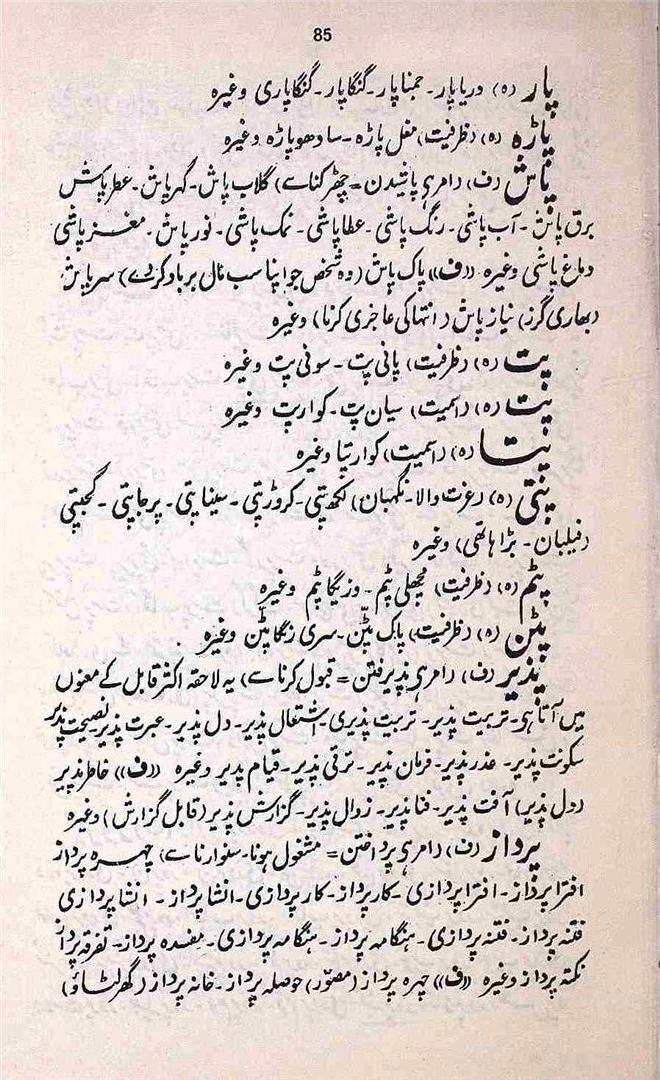 85
پار (ہ) دریا پار۔ جمنا پار۔ گنگا پار۔ گنگا پاری وغیرہ
پاڑہ (ہ) (ظرفیت) مغل پاڑہ۔ سادھو پاڑہ وغیرہ
پاش (ف) (امر ہے پاشیدن = چھڑکنا سے) گلاب پاش۔ گہر پاش۔ عطر پاش
برق پاش۔ آب پاشی۔ رنگ پاشی۔ عطا پاشی۔ نمک پاشی۔ نور پاش۔ مغز پاشی
دماغ پاشی وغیرہ ((ف)) پاک پاش (وہ شخص جو اپنا سب مال برباد کردے) سر پاش
(بھاری گرز) نیاز پاش (انتہا کی عاجزی کرنا) وغیرہ
پت (ہ) (ظرفیت) پانی پت۔ سونی پت وغیرہ
پت (ہ) (اسمیت) سیان پت۔ کوار پت وغیرہ
پتا (ہ) (اسمیت) کوار پتا وغیرہ
پتی (ہ) (عزت والا۔ نگہبان) لکھ پتی۔ کروڑ پتی۔ سینا پتی۔ پرجا پتی۔ گجپتی
(فیلبان۔ بڑا ہاتھی) وغیرہ
پٹم (ہ) (ظرفیت) مچھلی پٹم۔ وزیگا پٹم وغیرہ
پٹن (ہ) (ظرفیت) پاک پٹن۔ سری رنگا پٹن وغیرہ
پذیر (ف) (امر ہے پذیرفتن = قبول کرنا سے) یہ لاحقہ اکثر قابل کے معنوں
میں آتا ہے۔ تربیت پذیر۔ تربیت پذیری۔ اشتعال پذیر۔ دل پذیر۔ عبرت پذیر۔ نصیحت پذیر
سکونت پذیر۔ عذر پذیر۔ فرمان پذیر۔ ترقی پذیر۔ قیام پذیر وغیرہ ((ف)) خاطر پذیر
(دل پذیر) آفت پذیر۔ فنا پذیر۔ زوال پذیر۔ گزارش پذیر (قابل گزارش) وغیرہ
پرداز (ف) (امر ہے پرداختن = مشغول ہونا۔ سنوارنا سے) چہرہ پرداز
افترا پرداز۔ افترا پردازی۔ کار پرداز۔ کار پردازی۔ انشا پرداز۔ انشا پردازی
فتنہ پرداز۔ فتنہ پردازی۔ ہنگامہ پرداز۔ ہنگامہ پردازی۔ مفسدہ پرداز۔ تفرقہ پرداز
نکتہ پرداز وغیرہ ((ف)) چہرہ پرداز (مصوّر) حوصلہ پرداز۔ خانہ پرداز (گھر لٹاؤ)